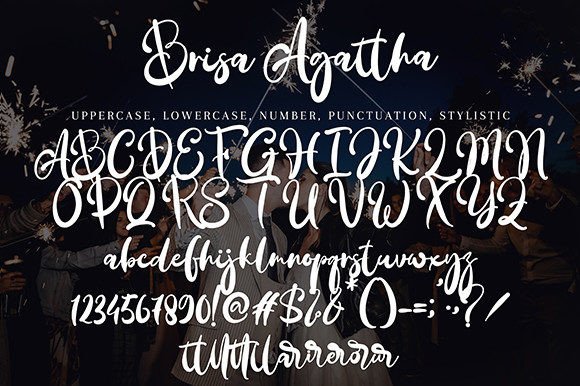 Brisa Agattha
UPPERCASE, LOWERCASE, NUMBER, PUNCTUATION, STYLISTIC
ABCDEFGHIJKLMN
OPQRSTUVWXYZ
abcdefhijklmnopqrstuvwxyz
1234567890!@#$%&*()-=;':,?/